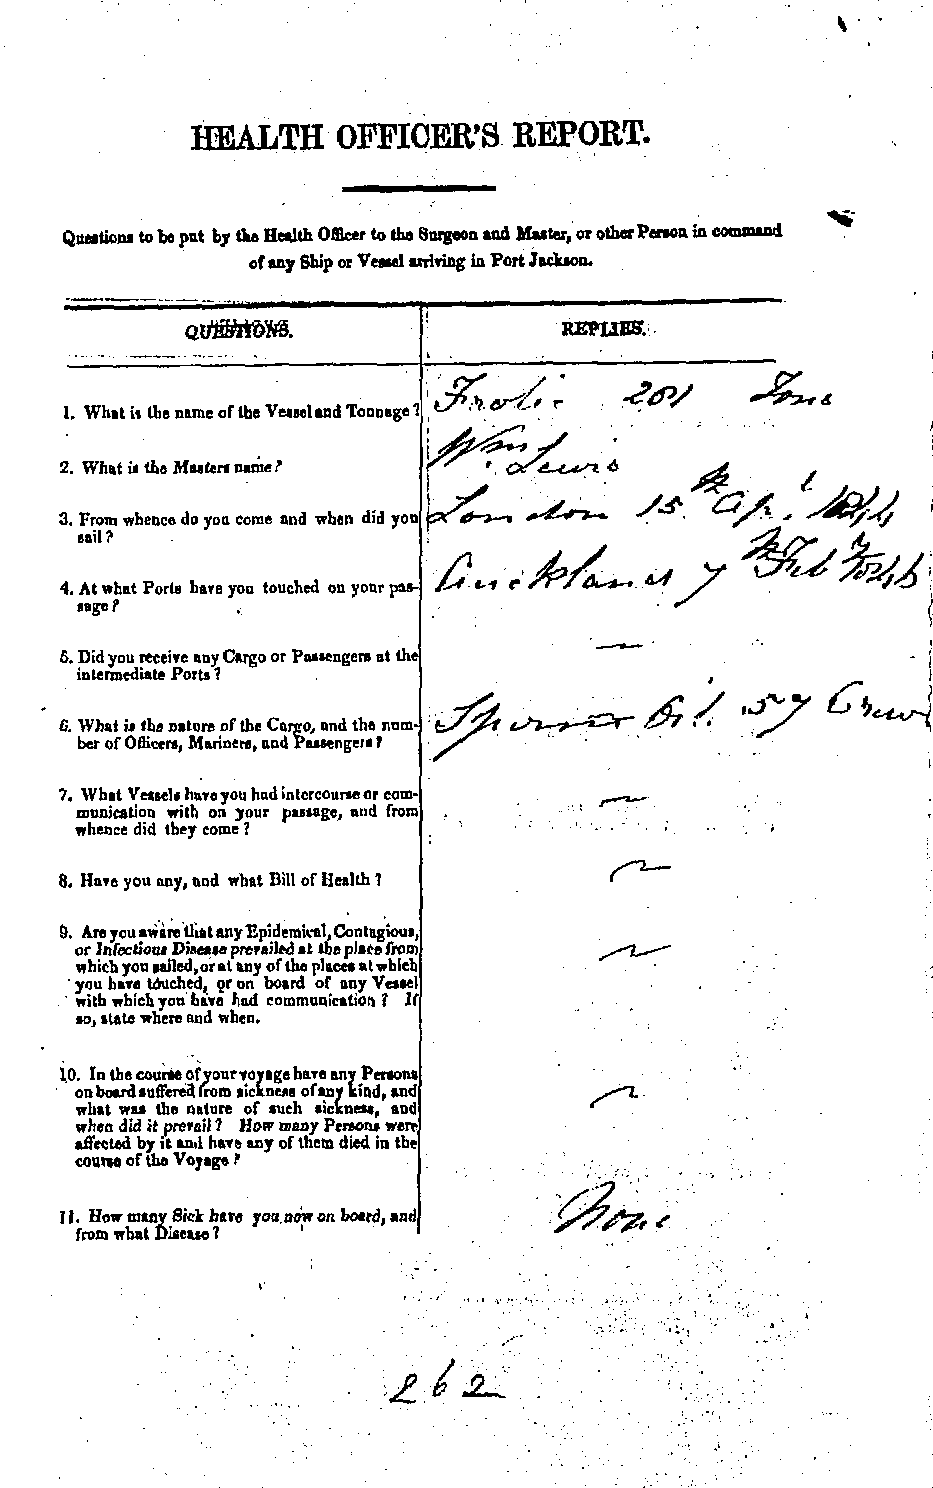 HEALTH OFFICER'S REPORT.
Questions to be put by the Health Officer to the Surgeon and Master, or other Person in command
of any Ship or Vessel arriving in Port Jackson.
QUESTIONS. REPLIES.
1. What is the name of the Vessel and Tonnage? Frolic 201 Tons
2. What is the Masters name? Wm Lewis
3. From whence do you come and when did you London 15th Apl 1844
sail?
4. At what Ports have you touched on your pas- Auckland 7th Feby
sage?
5. Did you receive any Cargo or Passengers at the —
intermediate Ports?
6. What is the nature of the Cargo, and the num- Sperm Oil. 57 Crew
ber of Officers, Mariners, and Passengers?
7. What Vessels have you had intercourse or com-
munication with on your passage, and from
whence did they come?
8. Have you any, and what Bill of Health?
9. Are you aware that any Epidemical, Contagious,
or Infectious Disease prevailed at the place from
which you sailed, or at any of the places at which
you have touched, or on board of any Vessel
with which you have had communication? If
so, state where and when.
10. In the course of your voyage have any Persons
on board suffered from sickness of any kind, and
what was the nature of such sickness, and
when did it prevail? How many Persons were
affected by it and have any of them died in the
course of the Voyage?
11. How many Sick have you now on board, and None
from what Disease?
262